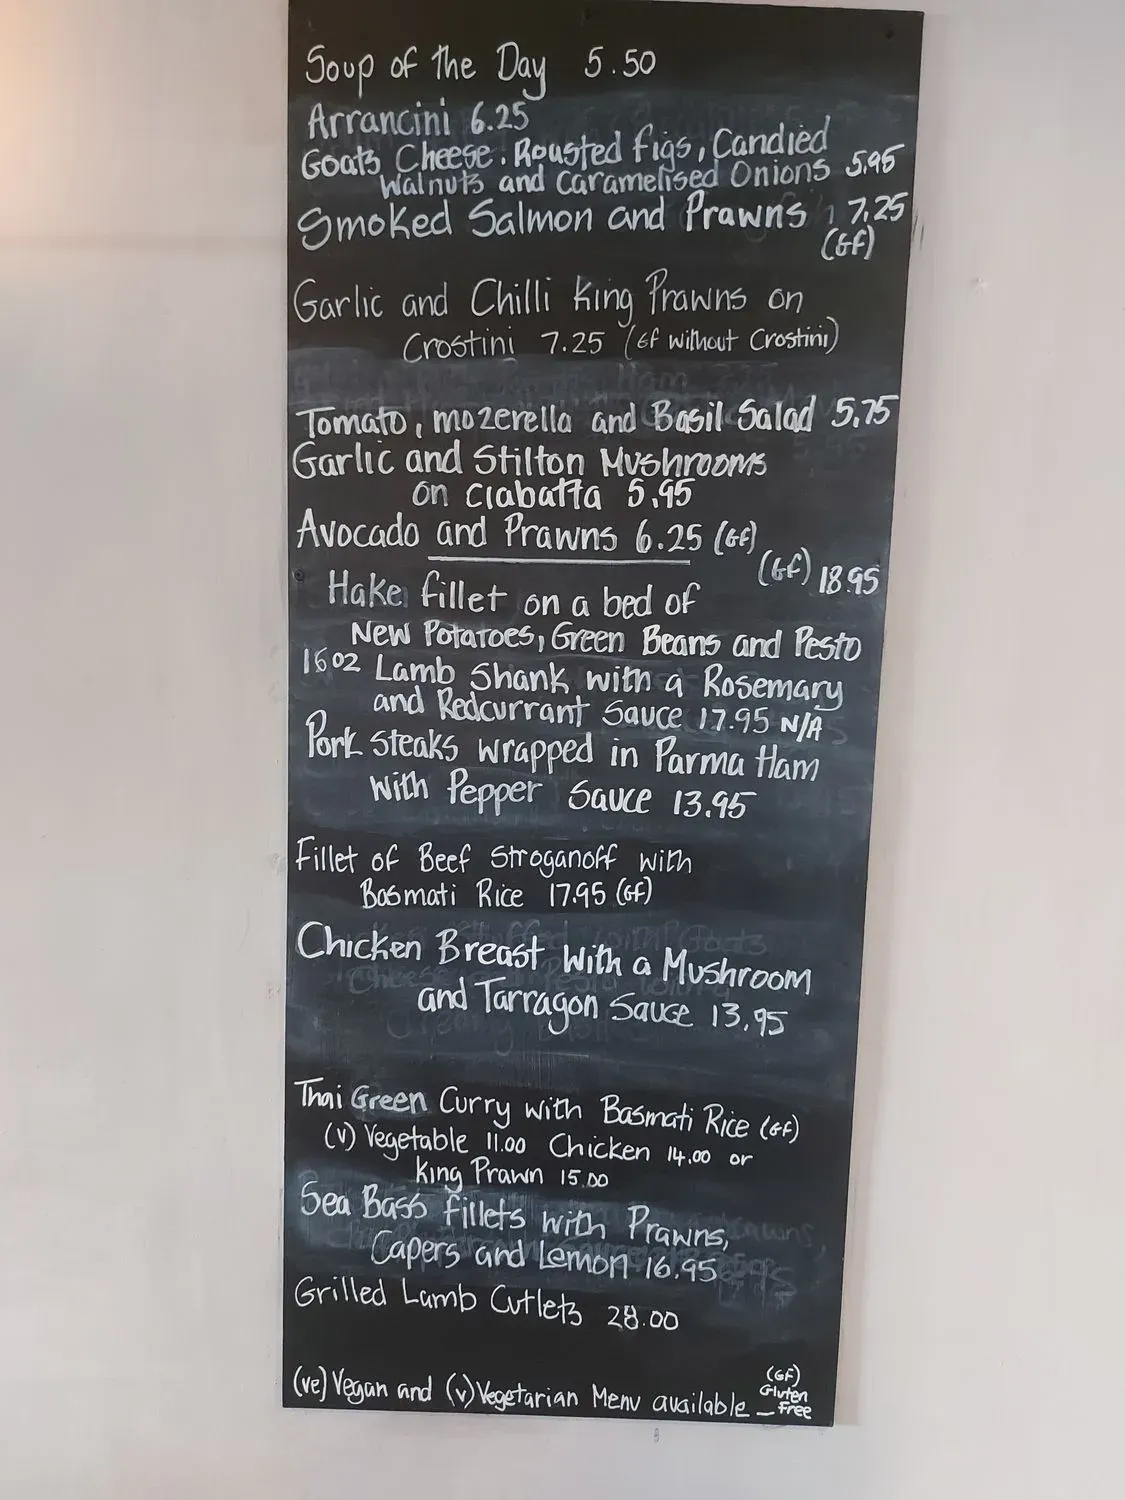 Soup of the Day 5.50
Arrancini 6.25
Goats Cheese. Rousted figs, Candied
Walnuts and Caramelised Onions 5.95
Smoked Salmon and Prawns 7.25
(GF)
Garlic and Chilli King Prawns on
Crostini 7.25 (GF without Crostini)
Tomato, mozerella and Basil Salad 5.75
Garlic and Stilton Mushrooms
on Ciabatta 5.95
Avocado and Prawns 6.25 (GF)
(GF) 18.95
Hake fillet on a bed of
New Potatoes, Green Beans and Pesto
16oz Lamb Shank with a Rosemary
and Redcurrant Sauce 17.95 N/A
Pork steaks wrapped in Parma Ham
with Pepper Sauce 13.95
Fillet of Beef Stroganoff with
Basmati Rice 17.95 (GF)
Chicken Breast with a Mushroom
and Tarragon Sauce 13.95
Thai Green Curry with Basmati Rice (GF)
(V) Vegetable 11.00 Chicken 14.00 or
King Prawn 15.00
Sea Bass fillets with Prawns,
Capers and Lemon 16.95
Grilled Lamb Cutlets 28.00
(ve) Vegan and (v) Vegetarian Menu available _
(GF)
Gluten
Free